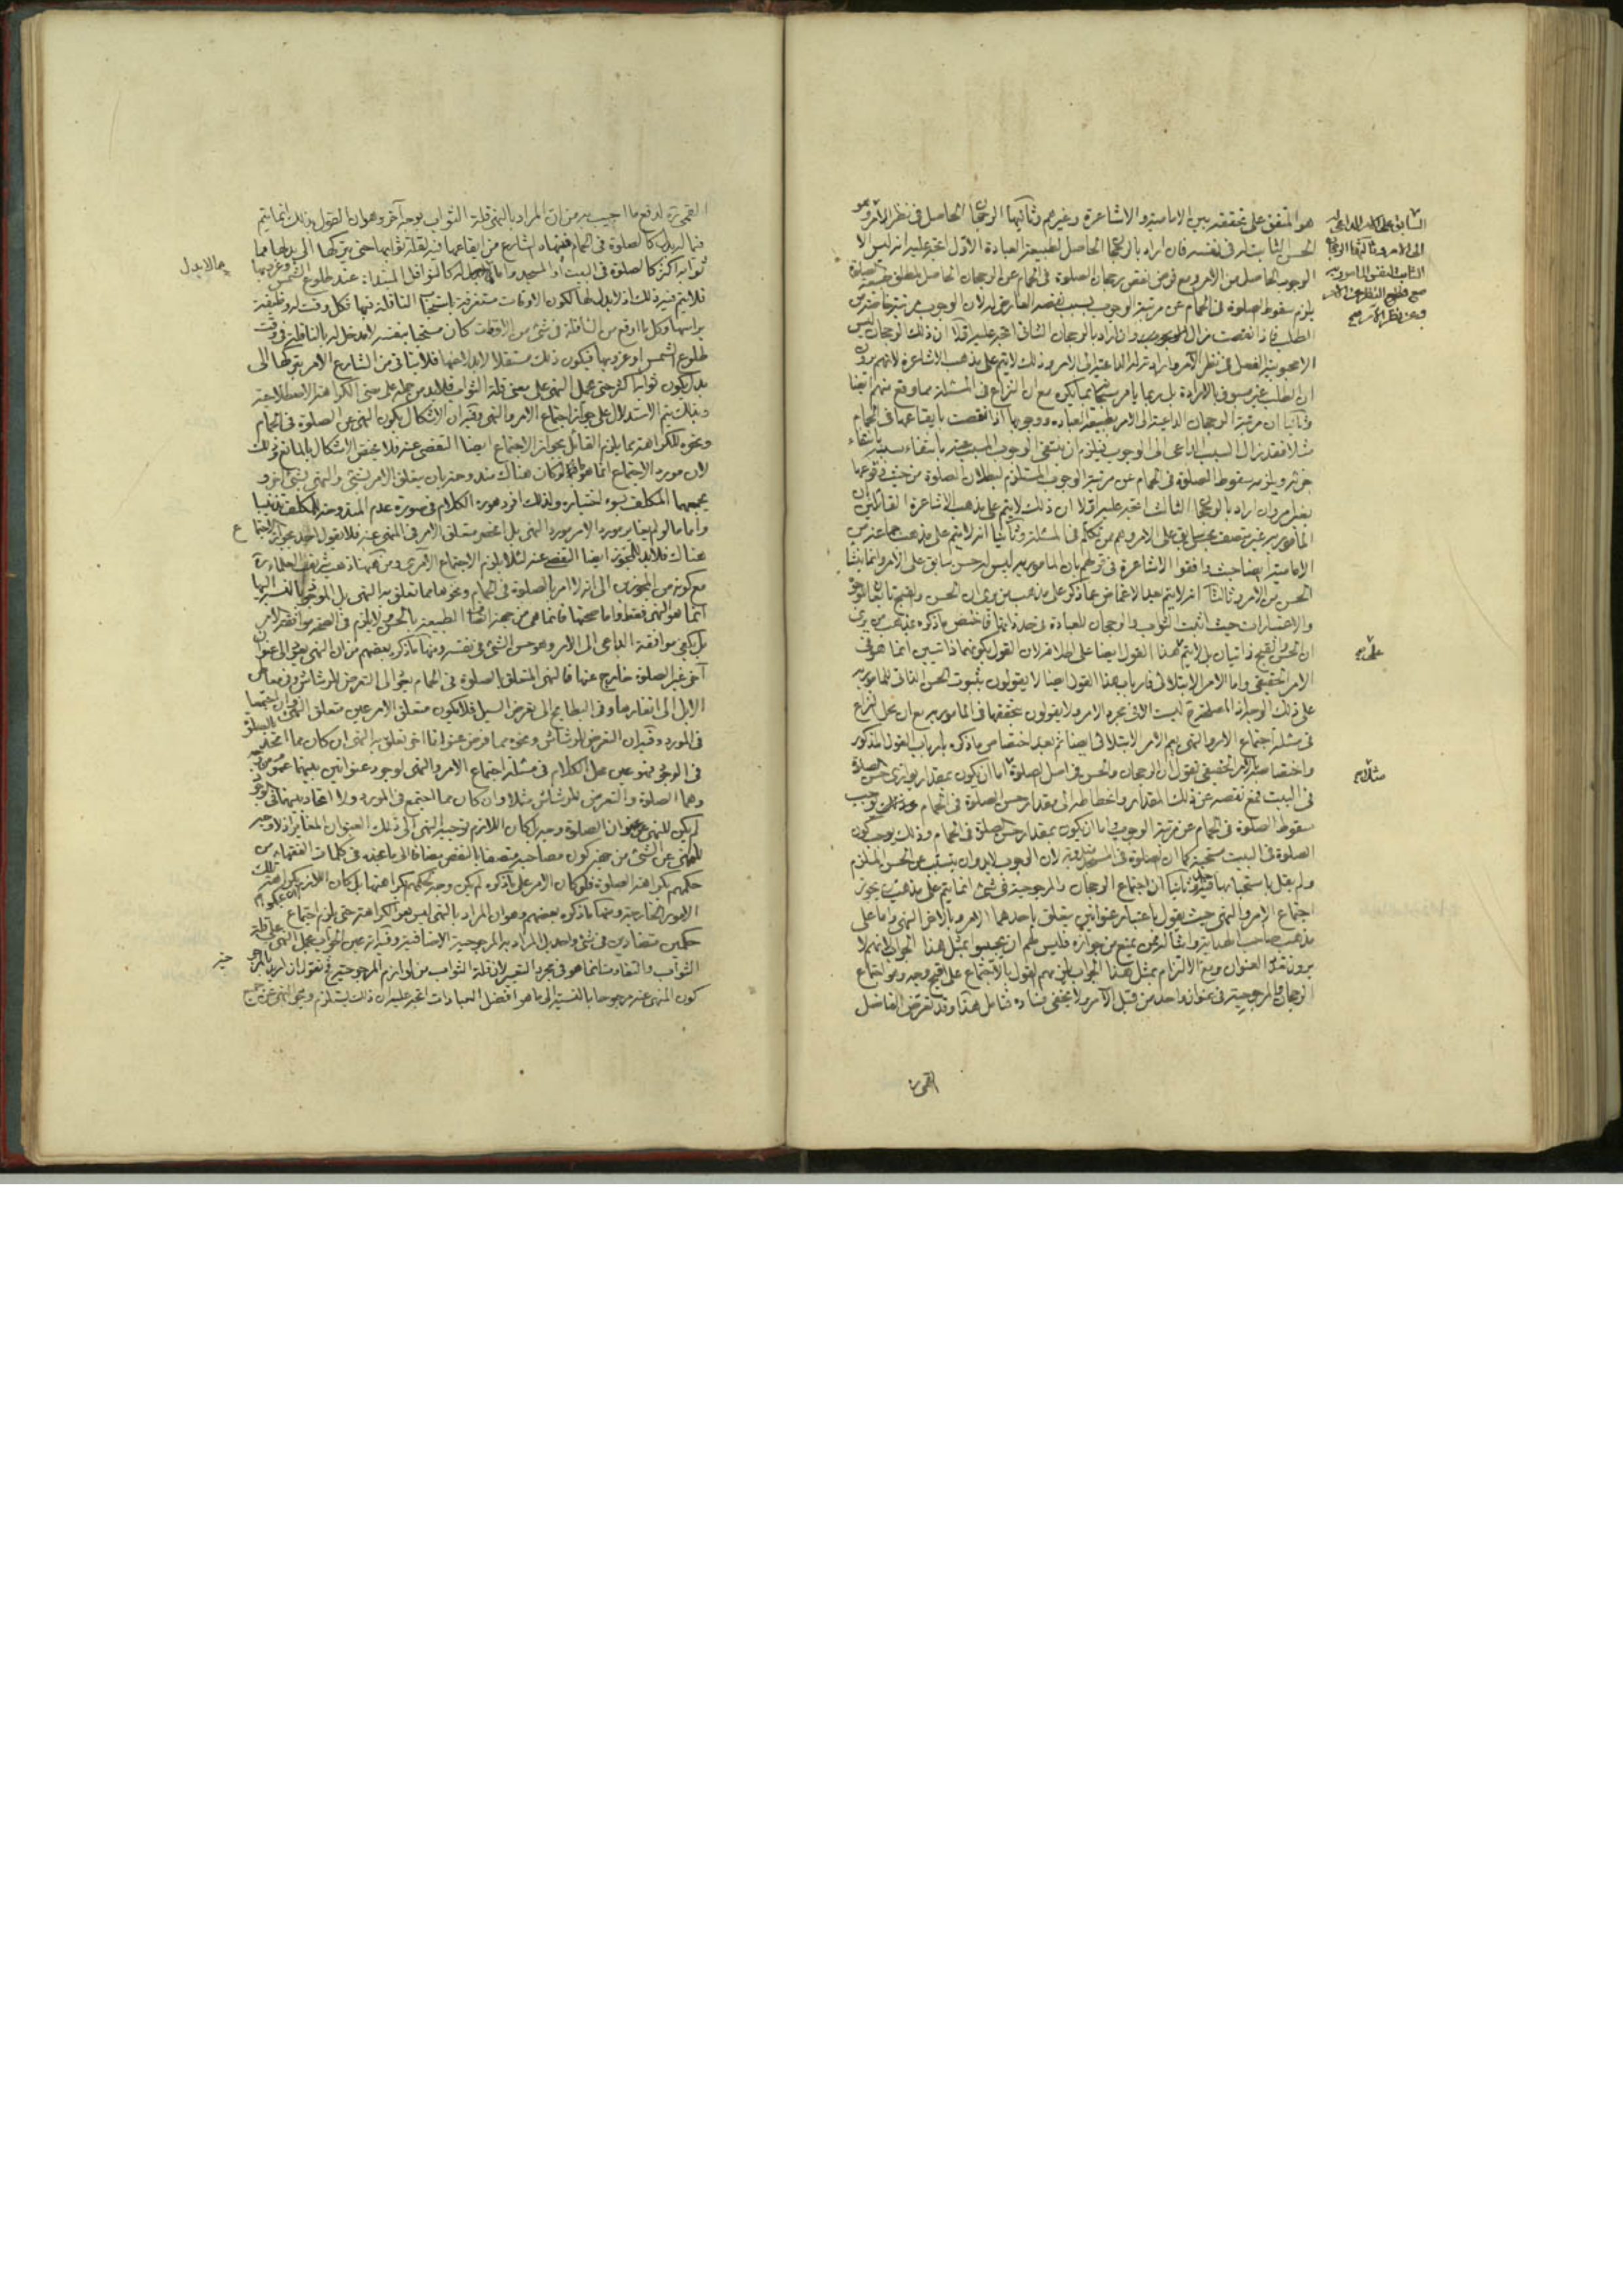 هو المتفق على تحققه بين الامامية والاشاعرة وغيرهم وثالثها الرجحان الحاصل فى نظر الآمر وهو
الحسن الثابت له فى نفسه فان اراد بالرجحان الحاصل لطبيعة العبادة الاول اتجه عليه انه ليس الا
الوجوب الحاصل من الامر ومع فرض نقص رجحان الصلوة فى الحمام عن الرجحان الحاصل لمطلق طبيعة الصلوة
يلزم سقوط الصلوة فى الحمام عن مرتبة الوجوب بسبب نقصه العارض له لان الوجوب مرتبة خاصة من
الطلب فاذا نقصت زال الوجوب وان اراد بالرجحان الثانى اتجه عليه اولا ان ذلك الرجحان ليس
الا محبوبية الفعل فى نظر الآمر وارادته له الداعية الى الامر وذلك لا يتم على مذهب الاشاعرة لانهم يرون
ان الطلب غير مسبوق بالارادة بل ربما يأمر بما يكره مع ان النزاع فى المسئلة مما وقع منهم ايضا
وثانيا ان مرتبة الرجحان الداعية الى الامر بطبيعة العبادة ووجوبها اذا نقصت بايقاعها فى الحمام
مثلا فقد زال السبب الداعى الى الوجوب فيلزم ان ينتفى الوجوب المسبب عنه بانتفاء سببه
ويلزمه سقوط الصلوة فى الحمام عن مرتبة الوجوب المستلزم لبطلان الصلوة من حيث وقوعها
وان اراد بالرجحان الثالث اتجه عليه اولا ان ذلك لا يتم على مذهب الاشاعرة القائلين بان
المأمور به غير متصف بحسن سابق على الامر وهم ممن تكلم فى المسئلة وثانيا انه لا يتم على مذهب جماعة من
الامامية ايضا حيث وافقوا الاشاعرة فى قولهم بان المامور به ليس له حسن سابق على الامر وانما ينشأ
الحسن من الامر وثالثا انه لا يتم بعد الاغماض عما ذكر على مذهب من يرى ان الحسن والقبح تابعان للوجوه
والاعتبارات حيث اثبت الثواب والرجحان للعبادة فى حد ذاتها فاختص ما ذكره بمذهب من يرى
ان الحسن والقبح ذاتيان بل لا يتم هذا القول ايضا على اطلاقه لان القول بكونهما ذاتيين انما هو فى
الامر الحقيقى واما الامر الابتلائى فارباب هذا القول ايضا لا يقولون بثبوت الحسن الذاتى للمامور به
على ذلك الوجه
فى مسئلة اجتماع الامر والنهى يعم الامر الابتلائى ايضا ثم بعد اختصاص ما ذكره بارباب القول المذكور
واختصاصه بالامر الحقيقى نقول ان الرجحان والحسن فى اصل الصلوة اما ان يكون بمقدار يوازى حسن الصلوة
فى البيت فمع نقصه عن ذلك المقدار وانحطاطه الى مقدار حسن الصلوة فى الحمام يوجب
سقوط الصلوة فى الحمام عن مرتبة الوجوب واما ان يكون بمقدار حسن الصلوة فى الحمام وذلك يوجب كون
الصلوة فى البيت مستحبة كما ان الصلوة فى المسجد مندوبة لان الوجوب لا بد وان يتسبب عن الحسن الملزم
ولم يقل باستحبابها فيه احد وثانيا ان اجتماع الرجحان والمرجوحية فى شئ انما يتم على مذهب من يجوز
اجتماع الامر والنهى حيث يقول باعتبار عنوانين يتعلق باحدهما الامر وبالآخر النهى واما على
مذهب صاحب الهداية وامثاله ممن يمنع من جوازه فليس لهم ان يجيبوا بمثل هذا الجواب لانهم لا
يرون تعدد العنوان ومع الالتزام بمثل هذا الجواب يلزمهم القول بالاجتماع على اقبح وجه وهو اجتماع
الرجحان والمرجوحية فى عنوان واحد من قبل الآمر ولا يخفى فساده فتامل هذا وقد تعرض الفاضل
القمى ره
السابق على الامر الداعى له
الى الامر وثالثها الرجحان
الثابت لنفس المأمور به
مع قطع النظر عن الامر
وعن نظر الآمر صح
على صح
مثلا صح
القمى ره لدفع ما اجيب به من ان المراد بالنهى قلة الثواب بوجه آخر وهو ان القول بذلك انما يتم
فيما له بدل كالصلوة فى الحمام فنهاه الشارع من ايقاعها فيه لقلة ثوابها حتى يتركها الى بدلها مما
ثوابه اكثر كالصلوة فى البيت او المسجد واما ما لا بدل له كالنوافل المبتداة عند طلوع الشمس وغروبها
فلا يتم فيه ذلك اذ لا بدل لها لكون الاوقات مستغرقة باستحباب النافلة فيها فكل وقت له وظيفة
براسها وكل ما اوقع من النافلة فى شئ من الاوقات كان مستحبا بنفسه لا مدخل له بالنافلة فى وقت
طلوع الشمس او غروبها فيكون ذلك مستقلا لا بدل عنها فلا يتاتى من الشارع الامر بتركها الى
بدل يكون ثوابه اكثر حتى يحمل النهى على معنى قلة الثواب فلا بد من حمله على معنى الكراهة الاصطلاحية
وبذلك يتم الاستدلال على جواز اجتماع الامر والنهى وفيه ان الاشكال بكون النهى عن الصلوة فى الحمام
ونحوه للكراهة مما يلزم القائل بجواز الاجتماع ايضا التفصى عنه فلا يختص الاشكال بالمانع من ذلك
لان مورد الاجتماع انما هو ما لو كان هناك مندوحة بان يتعلق الامر بشئ والنهى بشئ آخر و
يجمعهما المكلف بسوء اختياره ولذلك
واما ما لو لم يتغاير مورد الامر ومورد النهى بل انحصر متعلق الامر فى المنهى عنه فلا يقول احد بجواز الاجتماع
هناك فلا بد للمجوز ايضا التفصى عنه لئلا يلزم الاجتماع الآمرى ومن هيهنا ذهب شريف العلماء ره
مع كونه من المجوزين الى انه لا امر بالصلوة فى الحمام ونحوها مما تعلق به النهى بل الموجود بالنسبة اليها
انما هو النهى فقط واما صحتها فانما هى من جهة اتصاف الطبيعة بالحسن ولا يلزم فى الصحة موافقة الامر
بل يكفى موافقة الداعى الى الامر وهو حسن الشئ فى نفسه ومنها ما ذكره بعضهم من ان النهى يعود الى عنوان
آخر غير الصلوة خارج عنها فالنهى المتعلق بالصلوة فى الحمام يعود الى التعرض للرشاش وفى معاطن
الابل الى انفارها وفى البطايح الى تعرض السيل فلا يكون متعلق الامر عين متعلق النهى وان اجتمعا
فى المورد وفيه ان التعرض للرشاش ونحوه مما فرض عنوانا آخر تعلق به النهى ان كان مما اتحد مع الصلوة
فى الوجود فهو عين محل الكلام فى مسئلة اجتماع الامر والنهى لوجود عنوانين بينهما عموم من وجه
وهما الصلوة والتعرض للرشاش مثلا وان كان مما اجتمع فى المورد ولا اتحاد بينهما فى الوجود
لم يكن للنهى عن عنوان الصلوة وجه بل كان اللازم توجيه النهى الى ذلك العنوان المغاير اذ لا وجه
للنهى عن الشئ من جهة كون مصاحبه متصفا بالنقص مضافا الى ما نجده فى كلمات الفقهاء من
حكمهم بكراهة الصلوة فلو كان الامر على ما ذكره لم يكن وجه لحكمهم بكراهتها بل كان اللازم ان يحكموا بكراهة تلك
الامور الخارجة ومنها ما ذكره بعضهم وهو ان المراد بالنهى ليس هو الكراهة حتى يلزم اجتماع
حكمين متضادين فى شئ واحد بل المراد به المرجوحية الاضافية وفيه انه عين الجواب بحمل النهى على قلة
الثواب والتفاوت انما هو فى مجرد التعبير لان قلة الثواب من لوازم المرجوحية فنقول ان اريد بالمرجوحية
كون المنهى عنه مرجوحا بالنسبة الى ما هو افضل العبادات اتجه عليه ان ذلك يستلزم
مما لا بدل